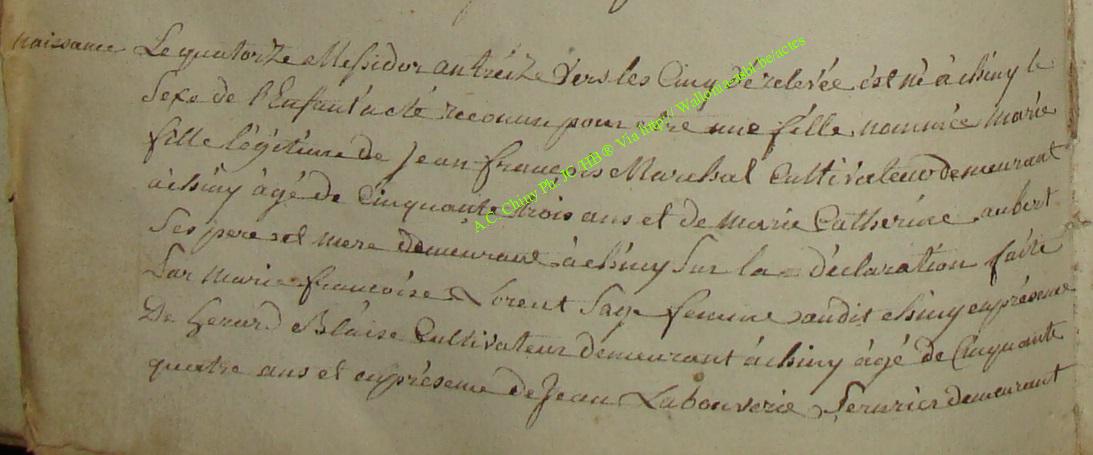 naissance Le quatorze Messidor an treize vers les Cinq de relevée est né à chiny le
Sexe de l'Enfant acté reconnu pour être une fille nommée Marie
fille légitime de Jean françois Marechal Cultivateur demeurant
à chiny âgé de Cinquante trois ans et de marie Catherine aubert
Ses pere et mere demeurant à chiny Sur la déclaration faite
Par marie françoise Lorent Sage femme audit chiny en présence
De Gerard Blaise Cultivateur demeurant à chiny âgé de Cinquante
quatre ans et en présence de Jean Labouverie Serurier demeurant
A.C. Chiny Ph. JC. HB® Via http// Wallonia-asbl.be/actes